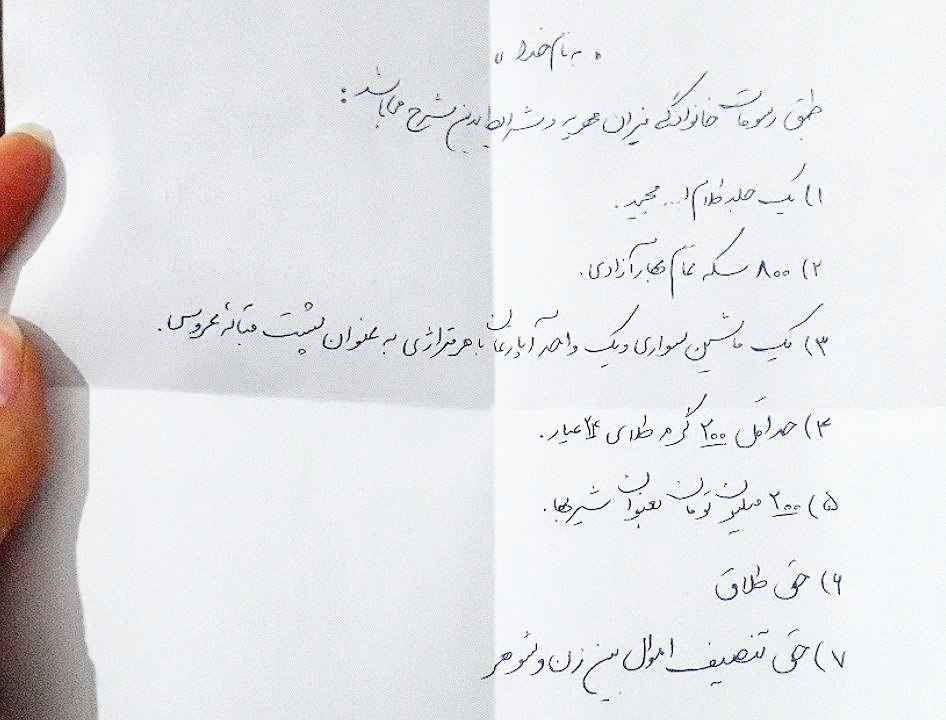 به نام خدا
طبق رسومات خانوادگی میزان مهریه و شرایط بدین شرح میباشد:
۱) یک جلد کلام ا... مجید.
۲) ۸۰۰ سکه تمام بهار آزادی.
۳) یک ماشین سواری و یک واحد آپارتمان با هر متراژی به عنوان پشت قبالهٔ عروس.
۴) حداقل ۲۰۰ گرم طلای ۲۴ عیار.
۵) ۲۰۰ میلیون تومان بعنوان شیربها.
۶) حق طلاق
۷) حق تنصیف اموال بین زن و شوهر